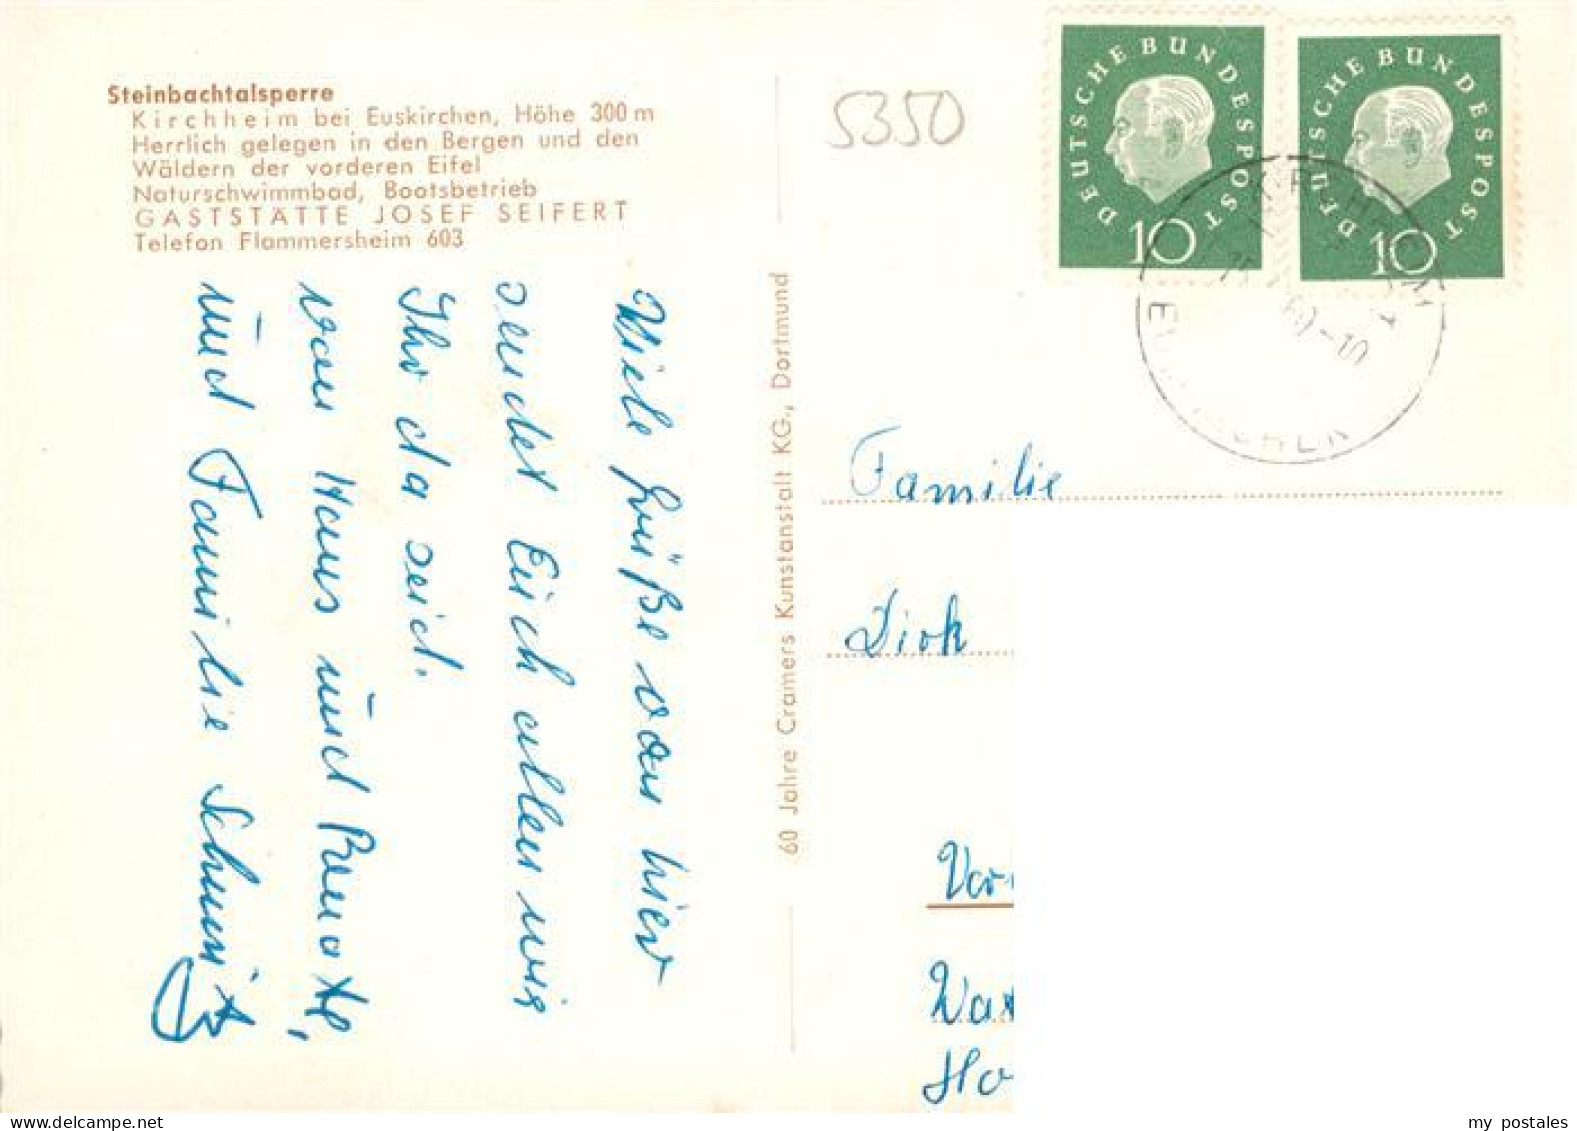 Steinbachtalsperre
Kirchheim bei Euskirchen, Höhe 300 m
Herrlich gelegen in den Bergen und den
Wäldern der vorderen Eifel
Naturschwimmbad, Bootsbetrieb
GASTSTÄTTE JOSEF SEIFERT
Telefon Flammersheim 603
Viele Grüße von hier
sendet Euch allen wie
Ihr da seid.
von Haus und Renate,
und Familie Schmitz
60 Jahre Cramers Kunstanstalt KG., Dortmund
5350
DEUTSCHE BUNDESPOST
10
DEUTSCHE BUNDESPOST
10
60-10
Familie
Dirk
my postales